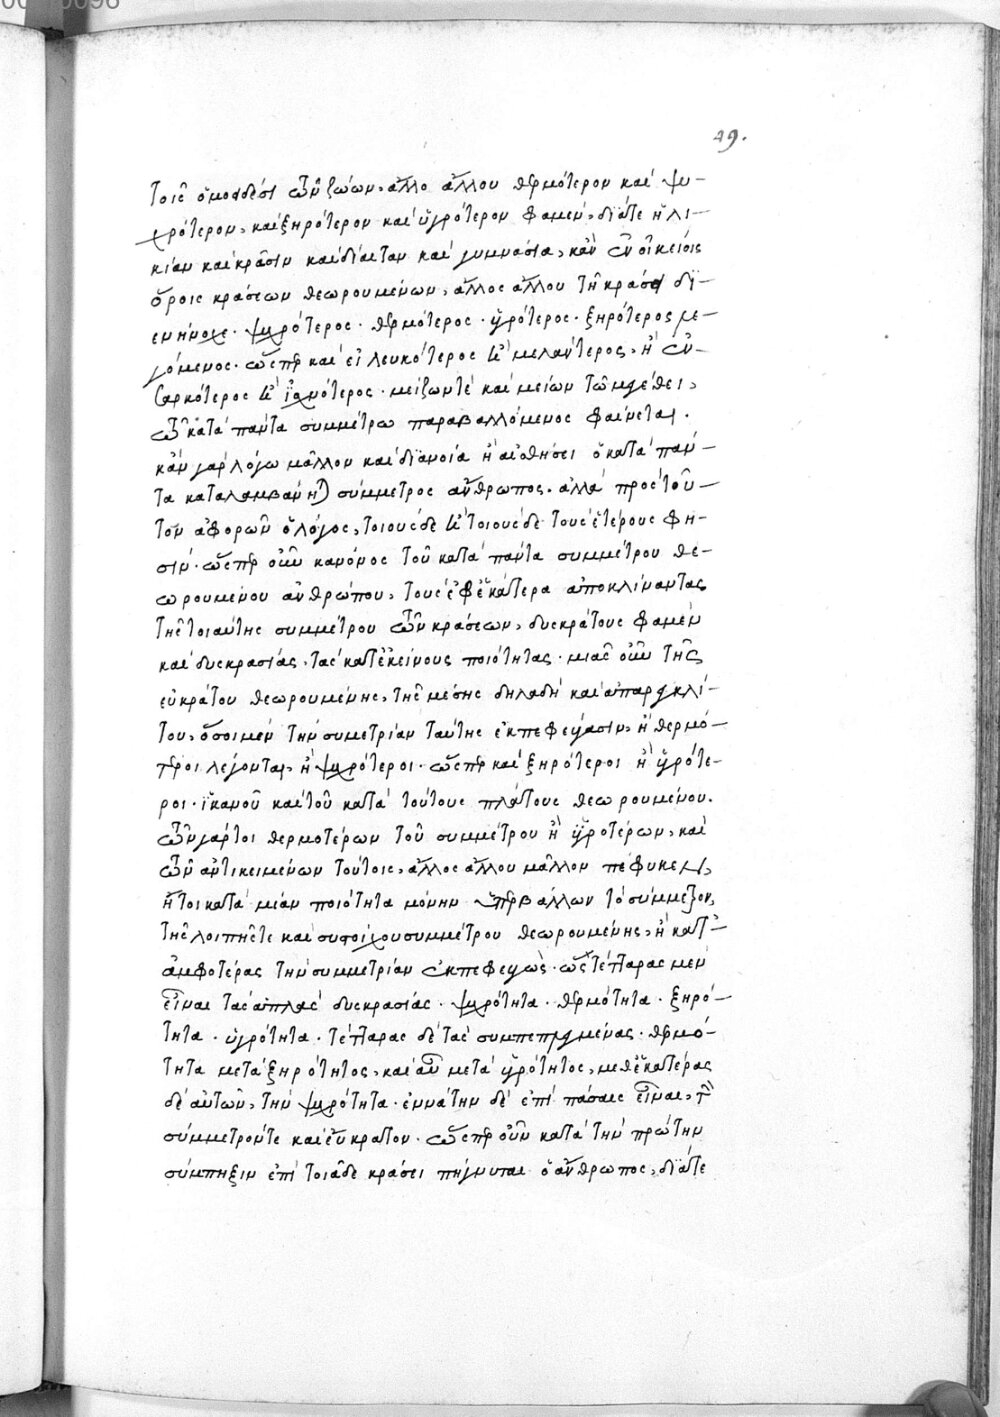 49.
τοῖς ὁμοειδέσι τῶν ζώων, ἄλλο ἄλλου θερμότερον καὶ ψυ-
χρότερον, καὶ ξηρότερον καὶ ὑγρότερον φαμεν, διά τε ἡλι-
κίαν καὶ κρᾶσιν καὶ δίαιταν καὶ γυμνάσια, κἂν τοῖς οἰκείοις
ὅροις κράσεων θεωρουμένων, ἄλλος ἄλλου τῇ κράσει δι-
ενήνοχε. ψυχρότερος. θερμότερος. ὑγρότερος. ξηρότερος λε-
γόμενος. ὥσπερ καὶ εἰ λευκότερος καὶ μελαντερος, ἢ εὐ-
σαρκότερος καὶ ἰσχνότερος. μείζων τὲ καὶ μείων τῷ μεγέθει,
τῷ κατὰ πάντα συμμέτρῳ παραβαλλόμενος φαίνεται.
κἂν γὰρ λόγω μᾶλλον καὶ διανοία ἢ αἰσθήσει ὁ κατὰ πάν-
τα καταλαμβάνηται σύμμετρος ἄνθρωπος. ἀλλὰ πρὸς τοῦ-
τον ἀφορῶν ὁ λόγος, τοιούσδε καὶ τοιούσδε τοὺς ἑτέρους φη-
σίν. ὥσπερ οὖν κανόνος τοῦ κατὰ πάντα συμμέτρου θε-
ωρουμένου ἀνθρώπου, τοὺς ἐφ' ἑκάτερα ἀποκλίναντας
τῆς τοιαύτης συμμέτρου τῶν κράσεων, δυσκράτους φαμὲν
καὶ δυσκρασίας, τὰς κατ' ἐκείνους ποιότητας. μιᾶς οὖν τῆς
εὐκράτου θεωρουμένης, τῆς μέσης δηλαδὴ καὶ ἀπαρεγκλί-
του, ὅσοι μὲν τὴν συμετρίαν ταύτης ἐκπεφεύγασιν, ἢ θερμό-
τεροι λέγονται, ἢ ψυχρότεροι. ὥσπερ καὶ ξηρότεροι ἢ ὑγρότε-
ροι. ἱκανοῦ καὶ τοῦ κατὰ τούτους πλάτους θεωρουμένου.
τῶν γάρ τοι θερμοτέρων τοῦ συμμέτρου ἢ ὑγροτέρων, καὶ
τῶν ἀντικειμένων τούτοις, ἄλλος ἄλλου μᾶλλον πέφυκεν,
ἤτοι κατὰ μίαν ποιότητα μόνην ὑπερβάλλων τὸ σύμμετρον,
τῆς λοιπῆς τε καὶ συστοίχου συμμέτρου θεωρουμένης, ἢ κατ'
ἀμφοτέρας τὴν συμμετρίαν ἐκπεφευγώς. ὡς τέτταρας μὲν
εἶναι τὰς ἁπλὰς δυσκρασίας. ψυχρότητα. θερμότητα. ξηρό-
τητα. ὑγρότητα. τέτταρας δὲ τὰς συμπεπλεγμένας. θερμό-
τητα μετὰ ξηρότητος, καὶ αὖ μετὰ ὑγρότητος, μεθ' ἑκατέρας
δὲ αὐτῶν, τὴν ψυχρότητα. ἐννάτην δὲ ἐπὶ πάσαις εἶναι, τὴν
σύμμετρόν τε καὶ εὔκρατον. ὥσπερ οὖν κατὰ τὴν πρώτην
σύμπηξιν ἐπὶ τοιᾷδε κράσει πήγνυται ὁ ἄνθρωπος, διά τε